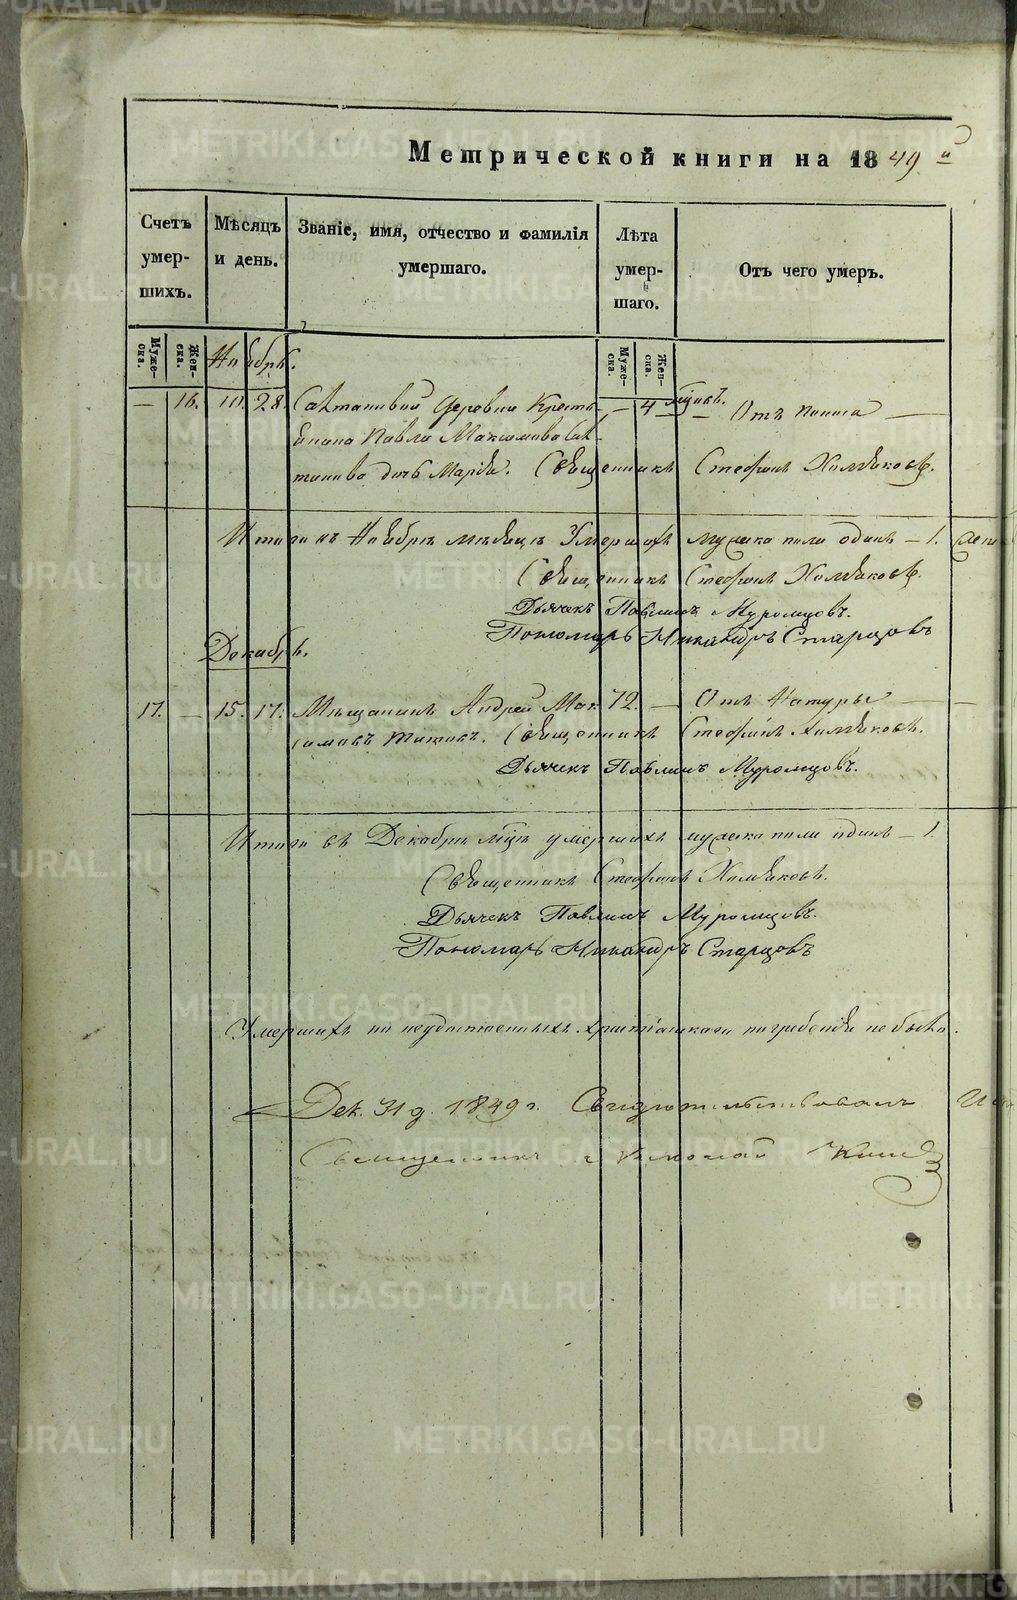 Метрической книги на 1849 й
Счетъ умер-шихъ.
Мѣсяцъ и день.
Званіе, имя, отчество и фамилія умершаго.
Лѣта умер-шаго.
Отъ чего умеръ.
Муже-ска.
Жен-ска.
Муже-ска.
Жен-ска.
Ноябрь.
— 16. 10. 28. деревни Кресть- — 4 Отъ поноса —
янина Павла Максимова
дочь Марія. Священникъ Стефанъ Хомяковъ.
Итого въ Ноябрѣ мѣсяцѣ Умершихъ мужеска пола одинъ — 1.
Священникъ Стефанъ Хомяковъ.
Дьячекъ Павлинъ Муромцовъ.
Пономарь Никандръ Старцовъ
Декабрь.
17. — 15. 17. Мѣщанинъ Андрей Мак- 72. — Отъ Натуры —
симовъ Титовъ. Священникъ Стефанъ Хомяковъ.
Дьячекъ Павлинъ Муромцовъ.
Итого въ Декабрѣ м̃цѣ умершихъ мужеска пола одинъ — 1.
Священникъ Стефанъ Хомяковъ.
Дьячекъ Павлинъ Муромцовъ.
Пономарь Никандръ Старцовъ
Умершихъ но неудостоенныхъ христіанскаго погребенія не было.
Дек. 31 д. 1849 г. Свидѣтельствовалъ
Священникъ Николай
METRIKI.GASO-URAL.RU